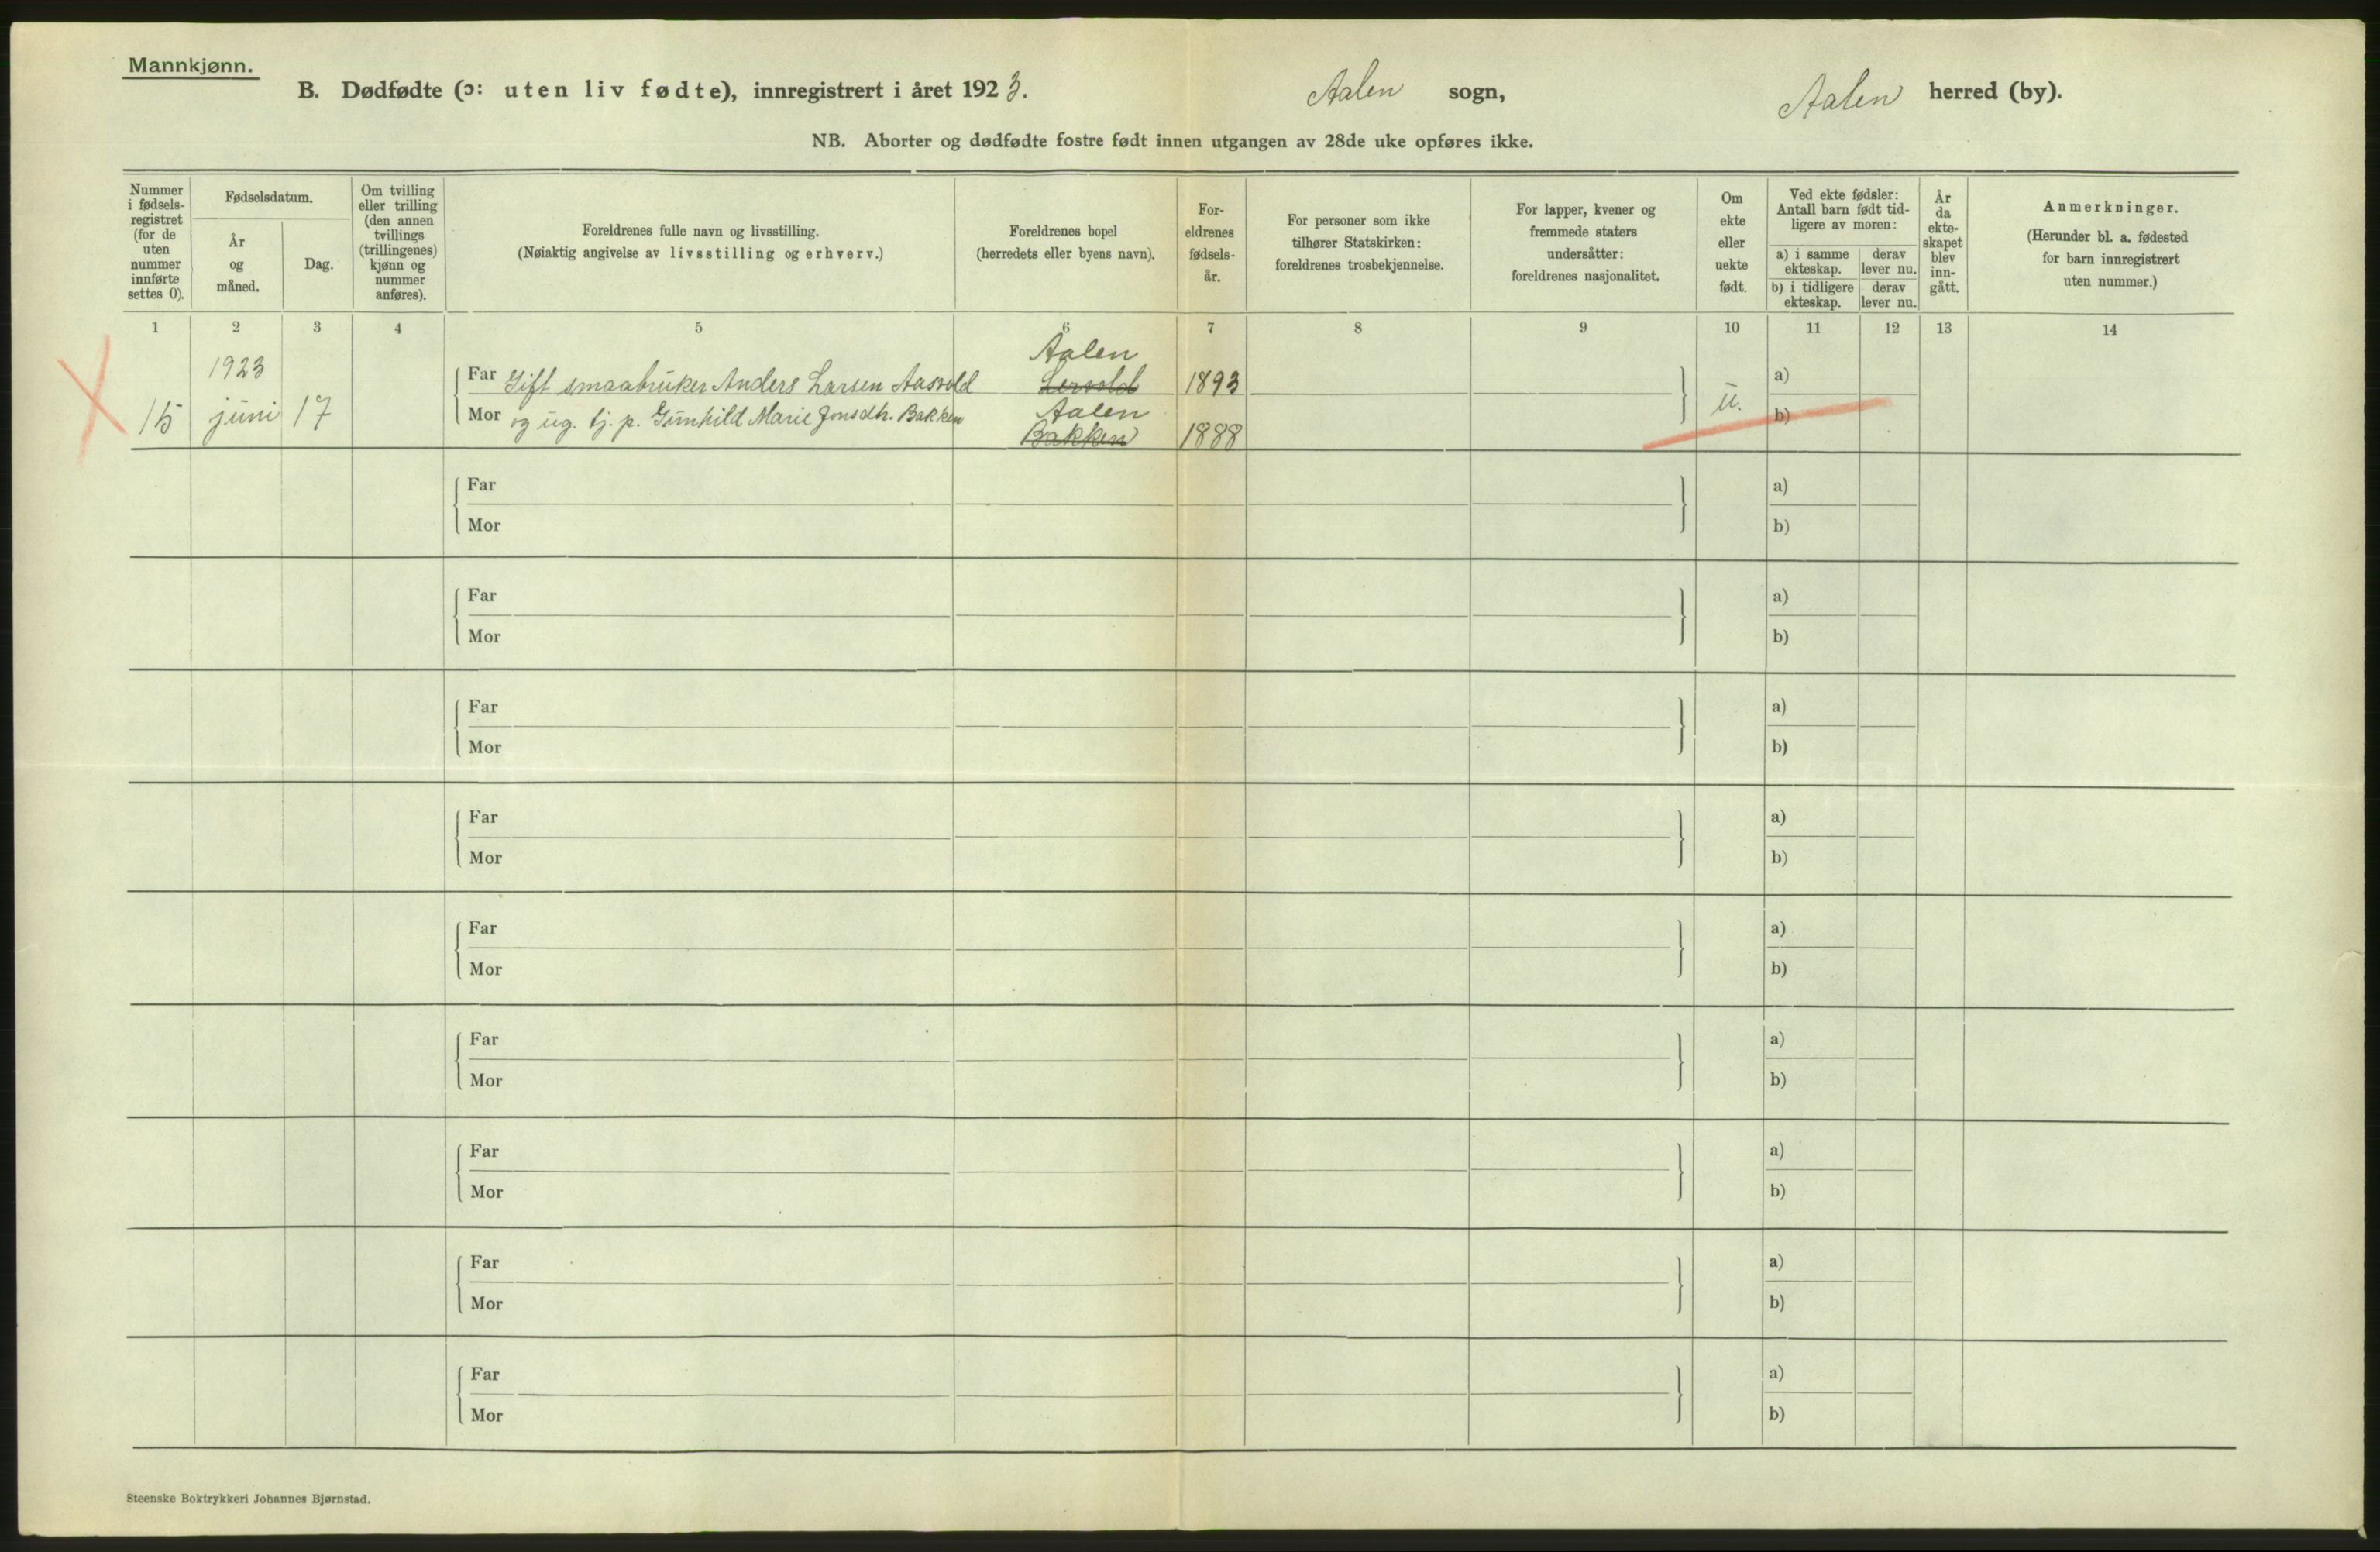 Mannkjønn.
B. Dødfødte (ɔ: uten liv fødte), innregistrert i året 1923. Aalen sogn, Aalen herred (by).
NB. Aborter og dødfødte fostre født innen utgangen av 28de uke opføres ikke.
Nummer
i fødsels-
registret
(for de
uten
nummer
innførte
settes 0).
Fødselsdatum.
År
og
måned.
Dag.
Om tvilling
eller trilling
(den annen
tvillings
(trillingenes)
kjønn og
nummer
anføres).
Foreldrenes fulle navn og livsstilling.
(Nøiaktig angivelse av livsstilling og erhverv.)
Foreldrenes bopel
(herredets eller byens navn).
For-
eldrenes
fødsels-
år.
For personer som ikke
tilhører Statskirken:
foreldrenes trosbekjennelse.
For lapper, kvener og
fremmede staters
undersåtter:
foreldrenes nasjonalitet.
Om
ekte
eller
uekte
født.
Ved ekte fødsler:
Antall barn født tid-
ligere av moren:
a) i samme
ekteskap.
derav
lever nu.
b) i tidligere
ekteskap.
derav
lever nu.
År
da
ekte-
skapet
blev
inn-
gått.
Anmerkninger.
(Herunder bl. a. fødested
for barn innregistrert
uten nummer.)
1 2 3 4 5 6 7 8 9 10 11 12 13 14
1923 Aalen
Far Gift smaabruker Anders Larsen Aasvold 1893 a)
15 juni 17 Mor og ug. tj. p. Gunhild Marie Jonsdh. Bakken Aalen u. b)
Bakken 1888
Far a)
Mor b)
Far a)
Mor b)
Far a)
Mor b)
Far a)
Mor b)
Far a)
Mor b)
Far a)
Mor b)
Far a)
Mor b)
Far a)
Mor b)
Far a)
Mor b)
Steenske Boktrykkeri Johannes Bjørnstad.